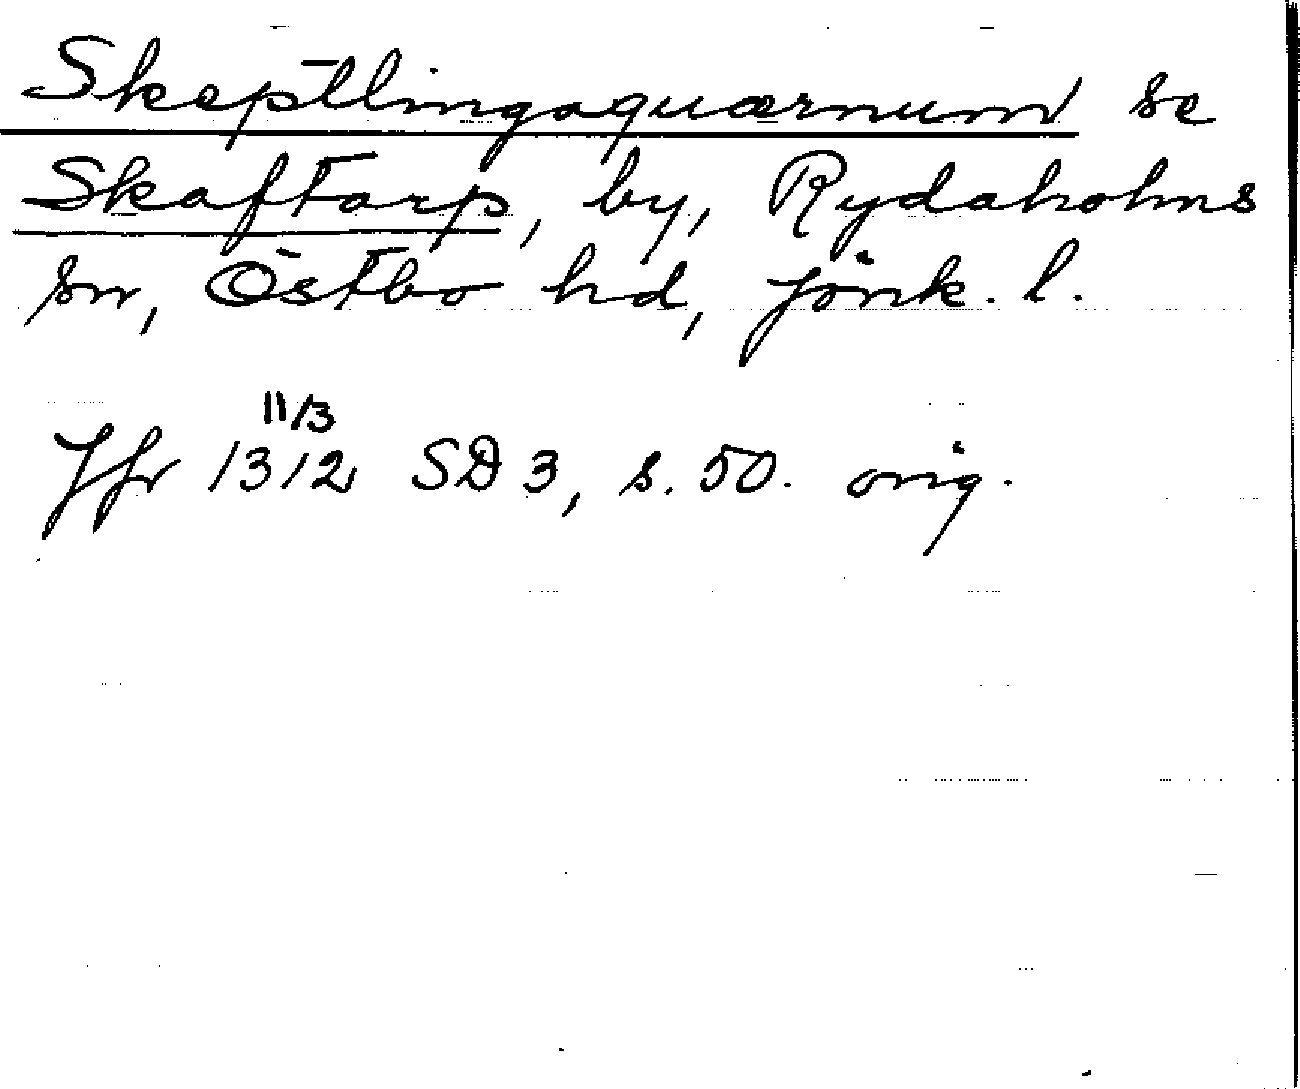 Skeptlingaquærnum se
Skaftarp, by, Rydaholms
sn, Östbo hd, Jönk. l.
11/3
Jfr 1312 SD 3, s. 50. orig.